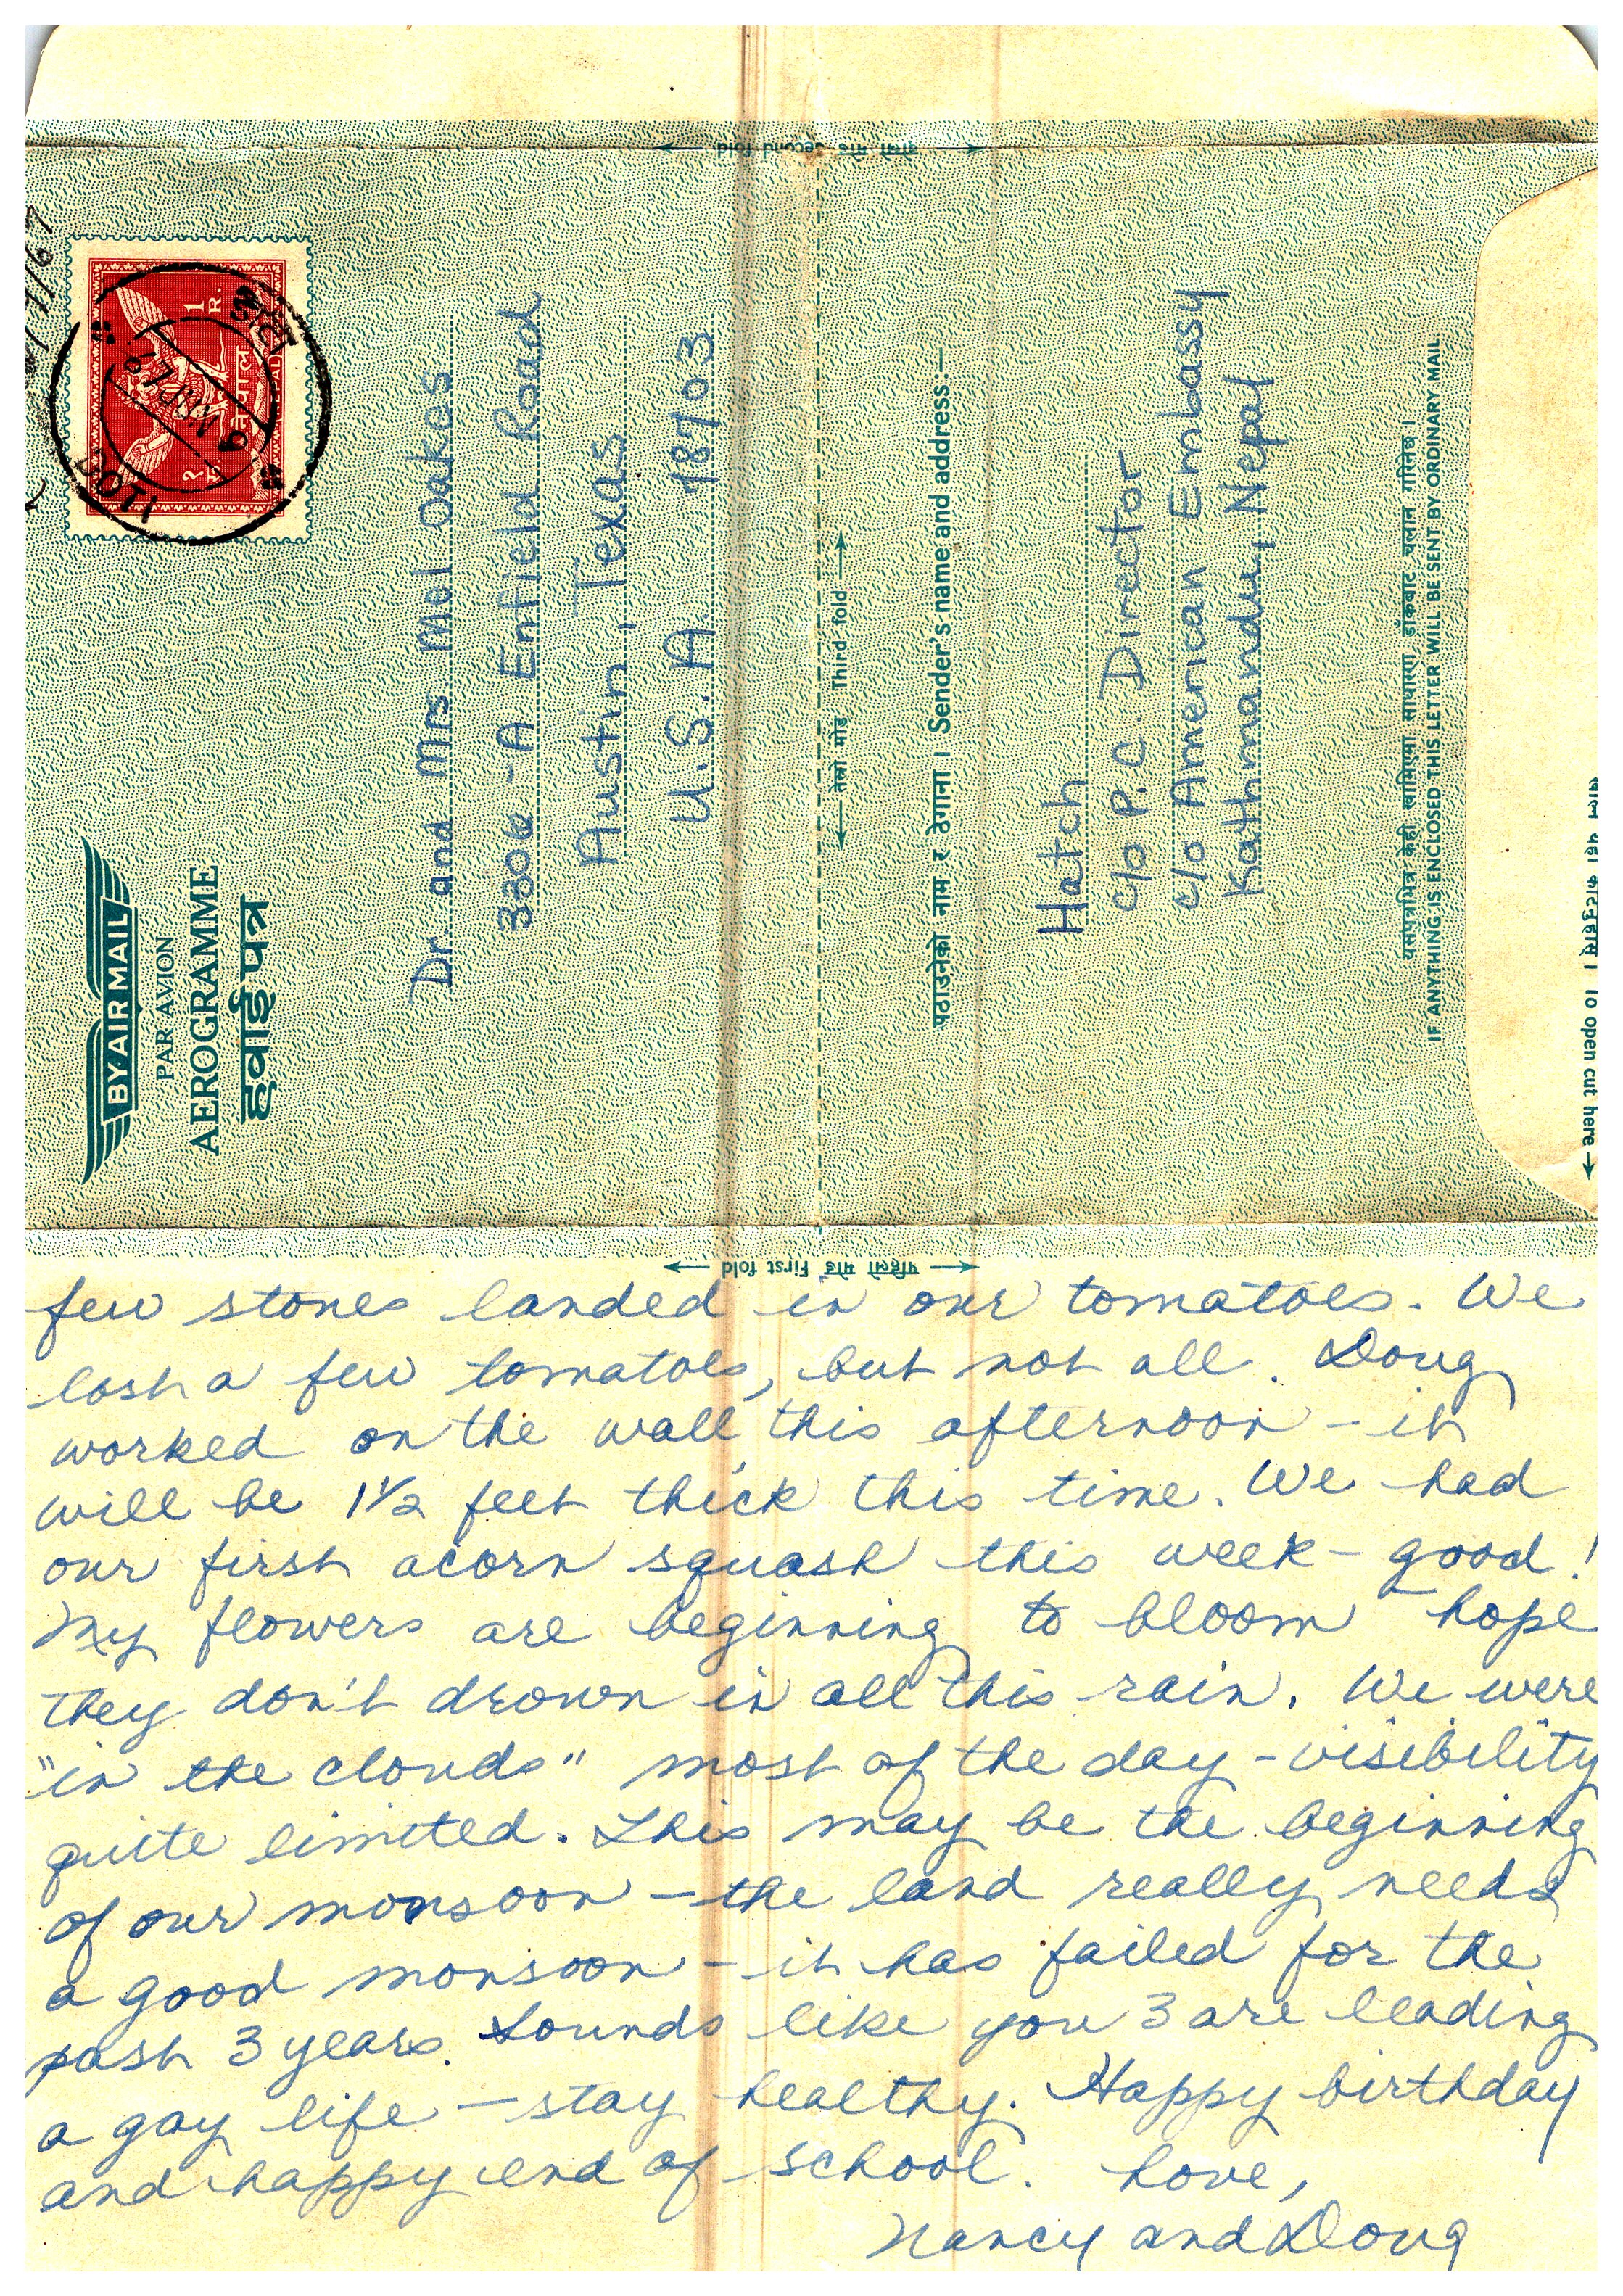 ← दोस्रो मोड Second fold →
/7/67
नेपाल
1 R.
DOTI
BY AIR MAIL
PAR AVION
AEROGRAMME
हवाई पत्र
Dr. and Mrs Mel Oakes
3306-A Enfield Road
Austin, Texas
U.S.A. 78703
← तेस्रो मोड Third fold →
पठाउनेको नाम र ठेगाना । Sender's name and address:—
Hatch
c/o P.C. Director
c/o American Embassy
Kathmandu, Nepal
यसपत्रभित्र केही खामिएमा साधारण डाँकबाट चलान गरिनेछ ।
IF ANYTHING IS ENCLOSED THIS LETTER WILL BE SENT BY ORDINARY MAIL.
To open cut here →
← पहिलो मोड First fold →
few stones landed in our tomatoes. We
lost a few tomatoes, but not all. Doug
worked on the wall this afternoon – it
will be 1½ feet thick this time. We had
our first acorn squash this week – good!
My flowers are beginning to bloom – hope
they don't drown in all this rain. We were
"in the clouds" most of the day – visibility
quite limited. This may be the beginning
of our monsoon – the land really needs
a good monsoon – it has failed for the
past 3 years. Sounds like you 3 are leading
a gay life – stay healthy. Happy birthday
and happy end of school. Love,
Nancy and Doug